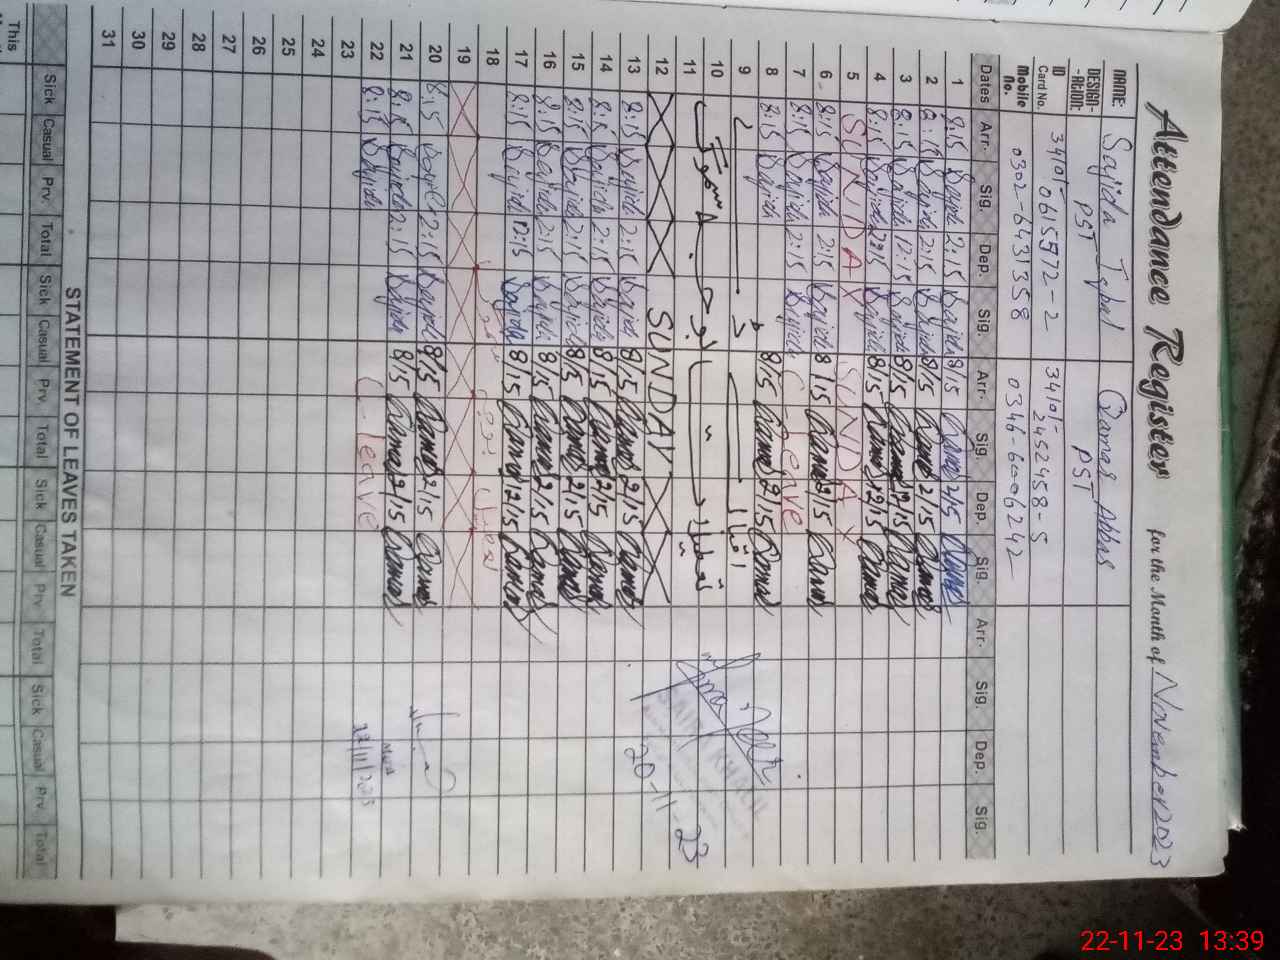 Attendance Register for the Month of November 2023
NAME: Sajida Iqbal Qamar Abbas
DESIGN-ATION: PST PST
ID Card No. 34101-0615972-2 34101-2452458-5
Mobile No. 0302-6431358 0346-6006242
Dates Arr. Sig. Dep. Sig. Arr. Sig. Dep. Sig. Arr. Sig. Dep. Sig.
1 8:15 Sajida 2:15 Sajida 8/15 Qamar 2/15 Qamar
2 8:15 Sajida 2:15 Sajida 8/15 Qamar 2/15 Qamar
3 8:15 Sajida 12:15 Sajida 8/15 Qamar 12/15 Qamar
4 8:15 Sajida 2:15 Sajida 8/15 Qamar 2/15 Qamar
5 SUNDAY SUNDAY
6 8:15 Sajida 2:15 Sajida 8/15 Qamar 2/15 Qamar
7 8:15 Sajida 2:15 Sajida C-Leave
8 8:15 Sajida 8/15 Qamar 2/15 Qamar
9 اقبال
10
11
12 SUNDAY
13 8:15 Sajida 2:15 Sajida 8/15 Qamar 2/15 Qamar
14 8:15 Sajida 2:15 Sajida 8/15 Qamar 2/15 Qamar
15 8:15 Sajida 2:15 Sajida 8/15 Qamar 2/15 Qamar
16 8:15 Sajida 2:15 Sajida 8/15 Qamar 2/15 Qamar
17 8:15 Sajida 12:15 Sajida 8/15 Qamar 12/15 Qamar
18
19
20 8:15 Sajida 2:15 Sajida 8/15 Qamar 2/15 Qamar
21 8:15 Sajida 2:15 Sajida 8/15 Qamar 2/15 Qamar
22 8:15 Sajida C-Leave
23
24
25
26
27
28
29
30
31
20-11-23
STATEMENT OF LEAVES TAKEN
Sick Casual Prv. Total Sick Casual Prv. Total Sick Casual Prv Total Sick Casual Prv. Total
This
22-11-23 13:39